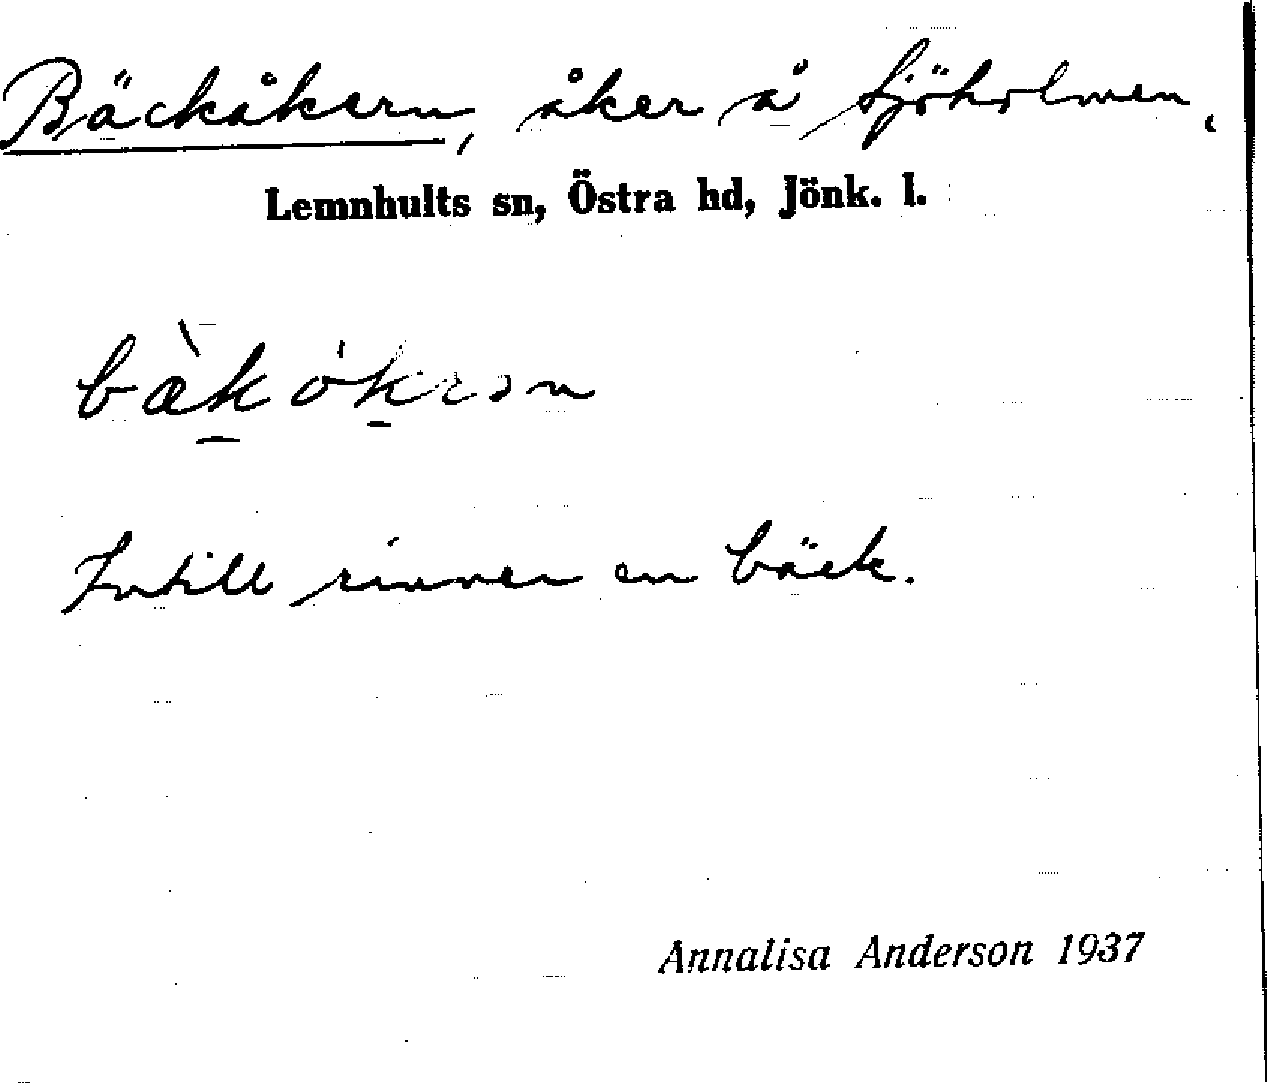 Bäckåkern, åker å Sjöholmen.
Lemnhults sn, Östra hd, Jönk. l.
bæ̀kókrən
Intill rinner en bäck.
Annalisa Anderson 1937